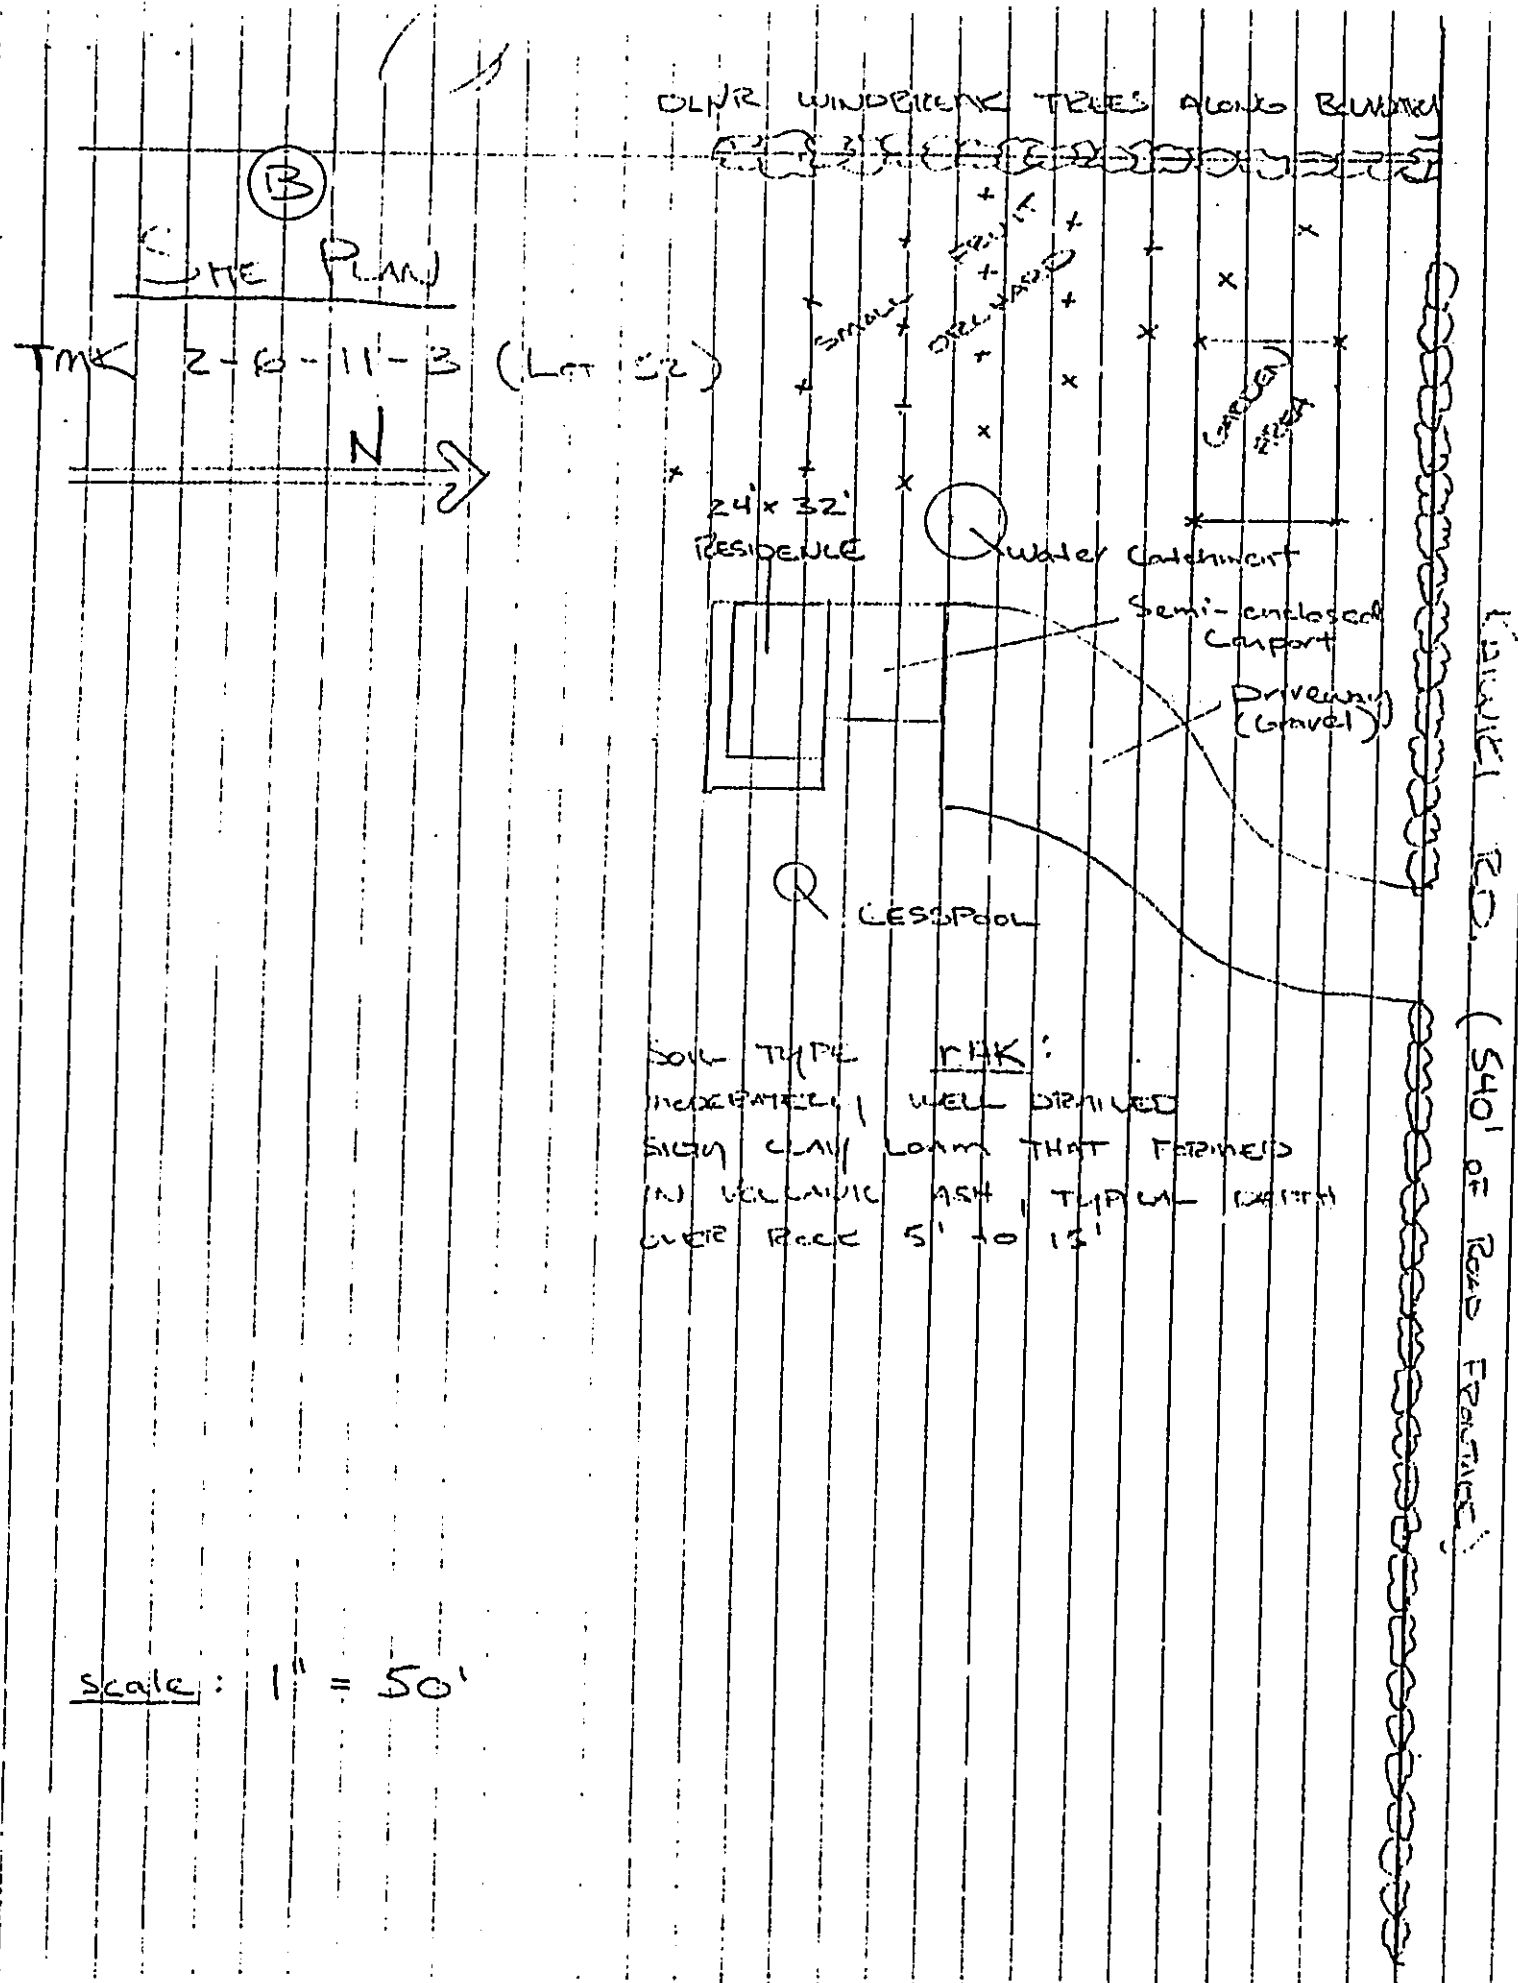 DLNR WINDBREAK TREES ALONG BOUNDARY
B
SITE PLAN
TMK 2-6-11-3 (LOT 52)
N
SMALL
FRUIT
ORCHARD
GARDEN
AREA
24' x 32'
RESIDENCE
Water Catchment
Semi-enclosed
Carport
Driveway
(Gravel)
CESSPOOL
RD. (540' OF ROAD FRONTAGE)
SOIL TYPE rAK:
MODERATELY WELL DRAINED
SILTY CLAY LOAM THAT FORMED
IN VOLCANIC ASH, TYPICAL DEPTH
OVER ROCK 5' to 13'
scale: 1" = 50'